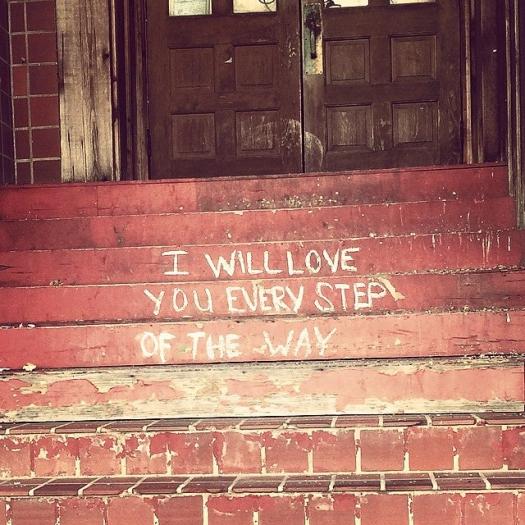 I WILL LOVE
YOU EVERY STEP
OF THE WAY